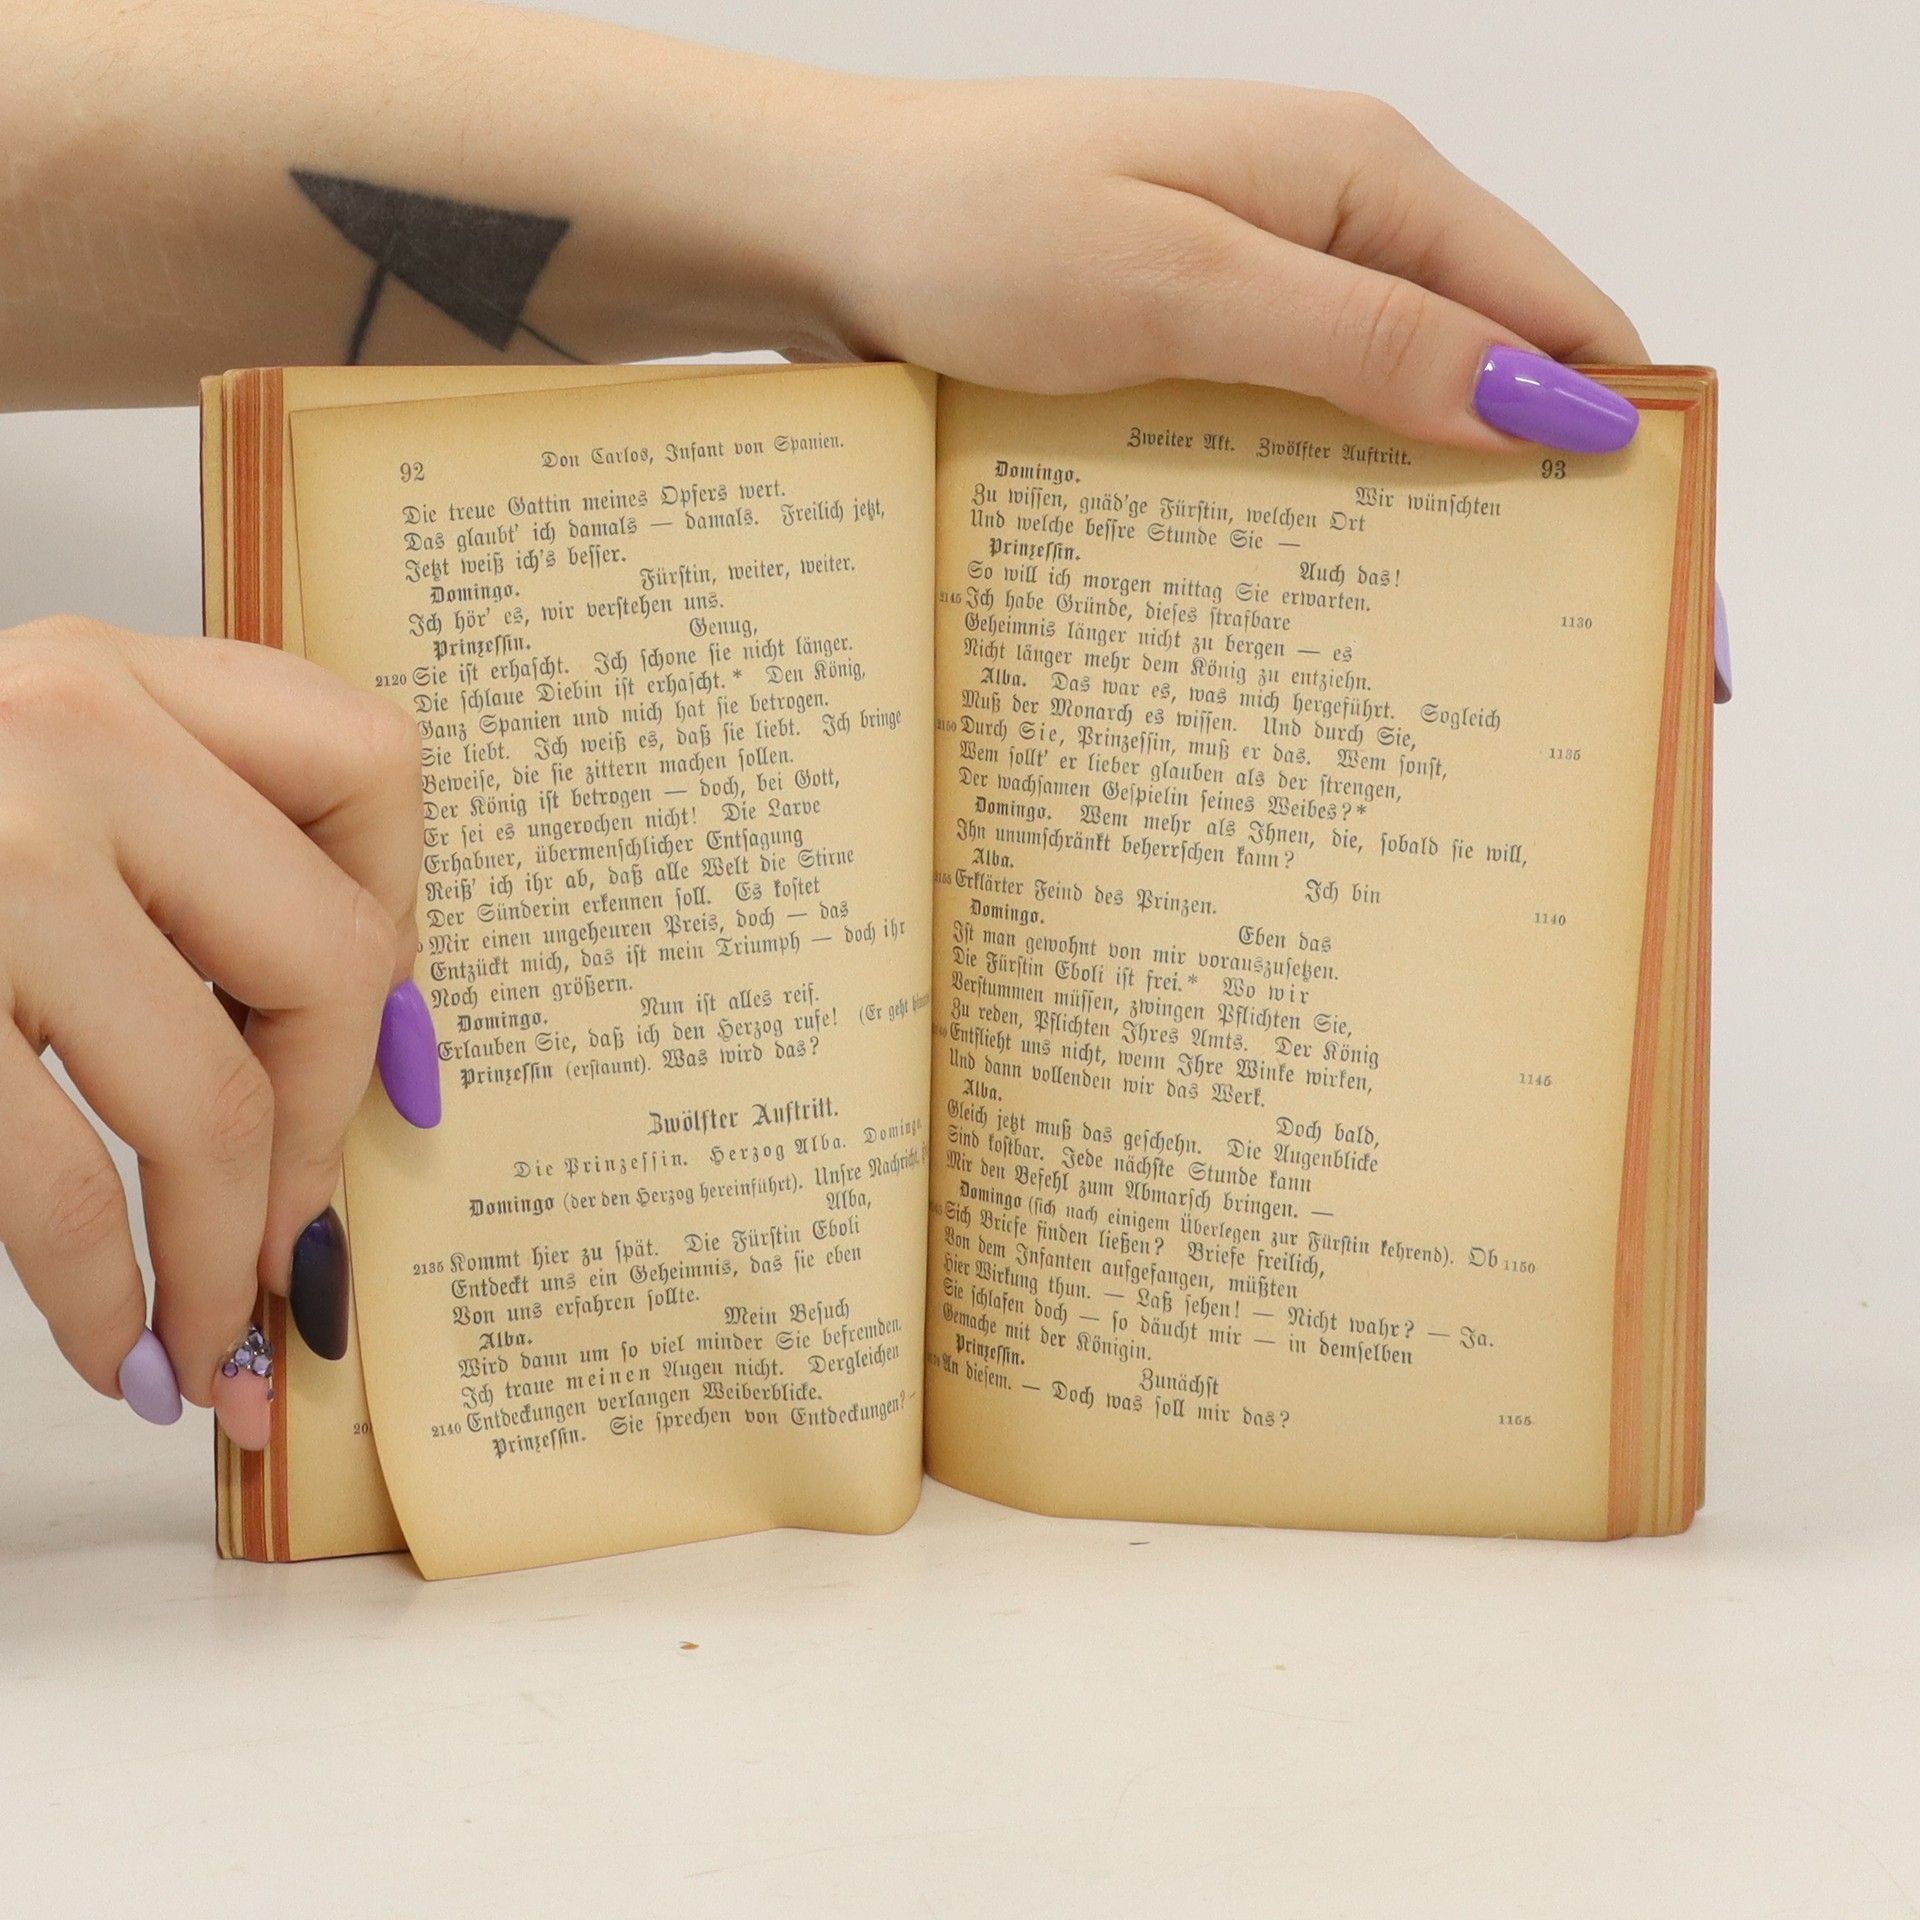 92
Don Carlos, Infant von Spanien.
Die treue Gattin meines Opfers wert.
Das glaubt' ich damals — damals. Freilich jetzt,
Jetzt weiß ich's besser.
Domingo. Fürstin, weiter, weiter.
Ich hör' es, wir verstehen uns.
Prinzessin. Genug,
2120 Sie ist erhascht. Ich schone sie nicht länger.
Die schlaue Diebin ist erhascht.* Den König,
Ganz Spanien und mich hat sie betrogen.
Sie liebt. Ich weiß es, daß sie liebt. Ich bringe
Beweise, die sie zittern machen sollen.
Der König ist betrogen — doch, bei Gott,
Er sei es ungerochen nicht! Die Larve
Erhabner, übermenschlicher Entsagung
Reiß' ich ihr ab, daß alle Welt die Stirne
Der Sünderin erkennen soll. Es kostet
Mir einen ungeheuren Preis, doch — das
Entzückt mich, das ist mein Triumph — doch ihr
Noch einen größern.
Domingo. Nun ist alles reif.
Erlauben Sie, daß ich den Herzog rufe! (Er geht
Prinzessin (erstaunt). Was wird das?
Zwölfter Auftritt.
Die Prinzessin. Herzog Alba. Domingo.
Domingo (der den Herzog hereinführt). Unsre Nachricht,
Alba,
2135 Kommt hier zu spät. Die Fürstin Eboli
Entdeckt uns ein Geheimnis, das sie eben
Von uns erfahren sollte.
Alba. Mein Besuch
Wird dann um so viel minder Sie befremden.
Ich traue meinen Augen nicht. Dergleichen
2140 Entdeckungen verlangen Weiberblicke.
Prinzessin. Sie sprechen von Entdeckungen? —
Zweiter Akt. Zwölfter Auftritt.
93
Domingo. Wir wünschten
Zu wissen, gnäd'ge Fürstin, welchen Ort
Und welche bessre Stunde Sie —
Prinzessin. Auch das!
So will ich morgen mittag Sie erwarten.
2145 Ich habe Gründe, dieses strafbare 1130
Geheimnis länger nicht zu bergen — es
Nicht länger mehr dem König zu entziehn.
Alba. Das war es, was mich hergeführt. Sogleich
Muß der Monarch es wissen. Und durch Sie,
2150 Durch Sie, Prinzessin, muß er das. Wem sonst, 1135
Wem sollt' er lieber glauben als der strengen,
Der wachsamen Gespielin seines Weibes?*
Domingo. Wem mehr als Ihnen, die, sobald sie will,
Ihn unumschränkt beherrschen kann?
Alba. Ich bin
2155 Erklärter Feind des Prinzen. 1140
Domingo. Eben das
Ist man gewohnt von mir vorauszusetzen.
Die Fürstin Eboli ist frei.* Wo wir
Verstummen müssen, zwingen Pflichten Sie,
Zu reden, Pflichten Ihres Amts. Der König
Entflieht uns nicht, wenn Ihre Winke wirken, 1145
Und dann vollenden wir das Werk.
Alba. Doch bald,
Gleich jetzt muß das geschehn. Die Augenblicke
Sind kostbar. Jede nächste Stunde kann
Mir den Befehl zum Abmarsch bringen. —
Domingo (sich nach einigem Überlegen zur Fürstin kehrend). Ob 1150
Sich Briefe finden ließen? Briefe freilich,
Von dem Infanten aufgefangen, müßten
Hier Wirkung thun. — Laß sehen! — Nicht wahr? — Ja.
Sie schlafen doch — so däucht mir — in demselben
Gemache mit der Königin.
Prinzessin. Zunächst
An diesem. — Doch was soll mir das? 1155